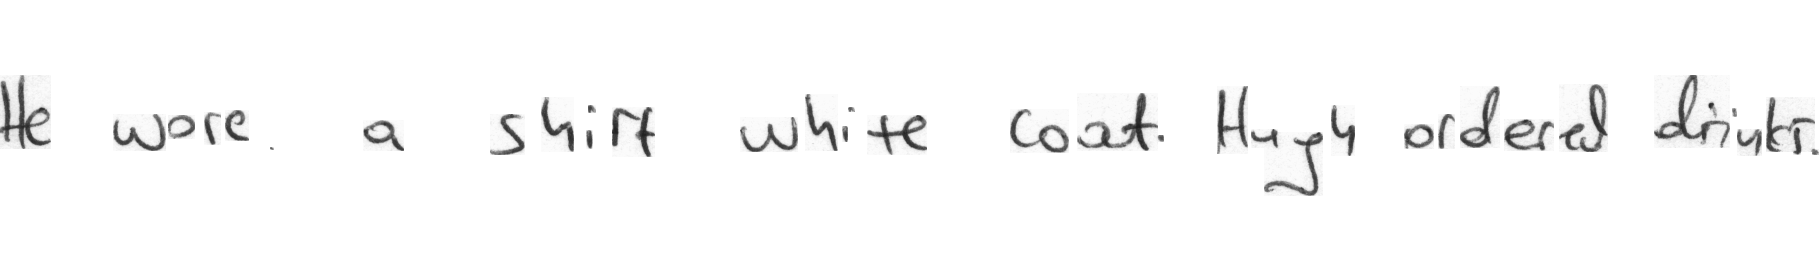 He wore a shirt white coat. Hugh ordered drinks.